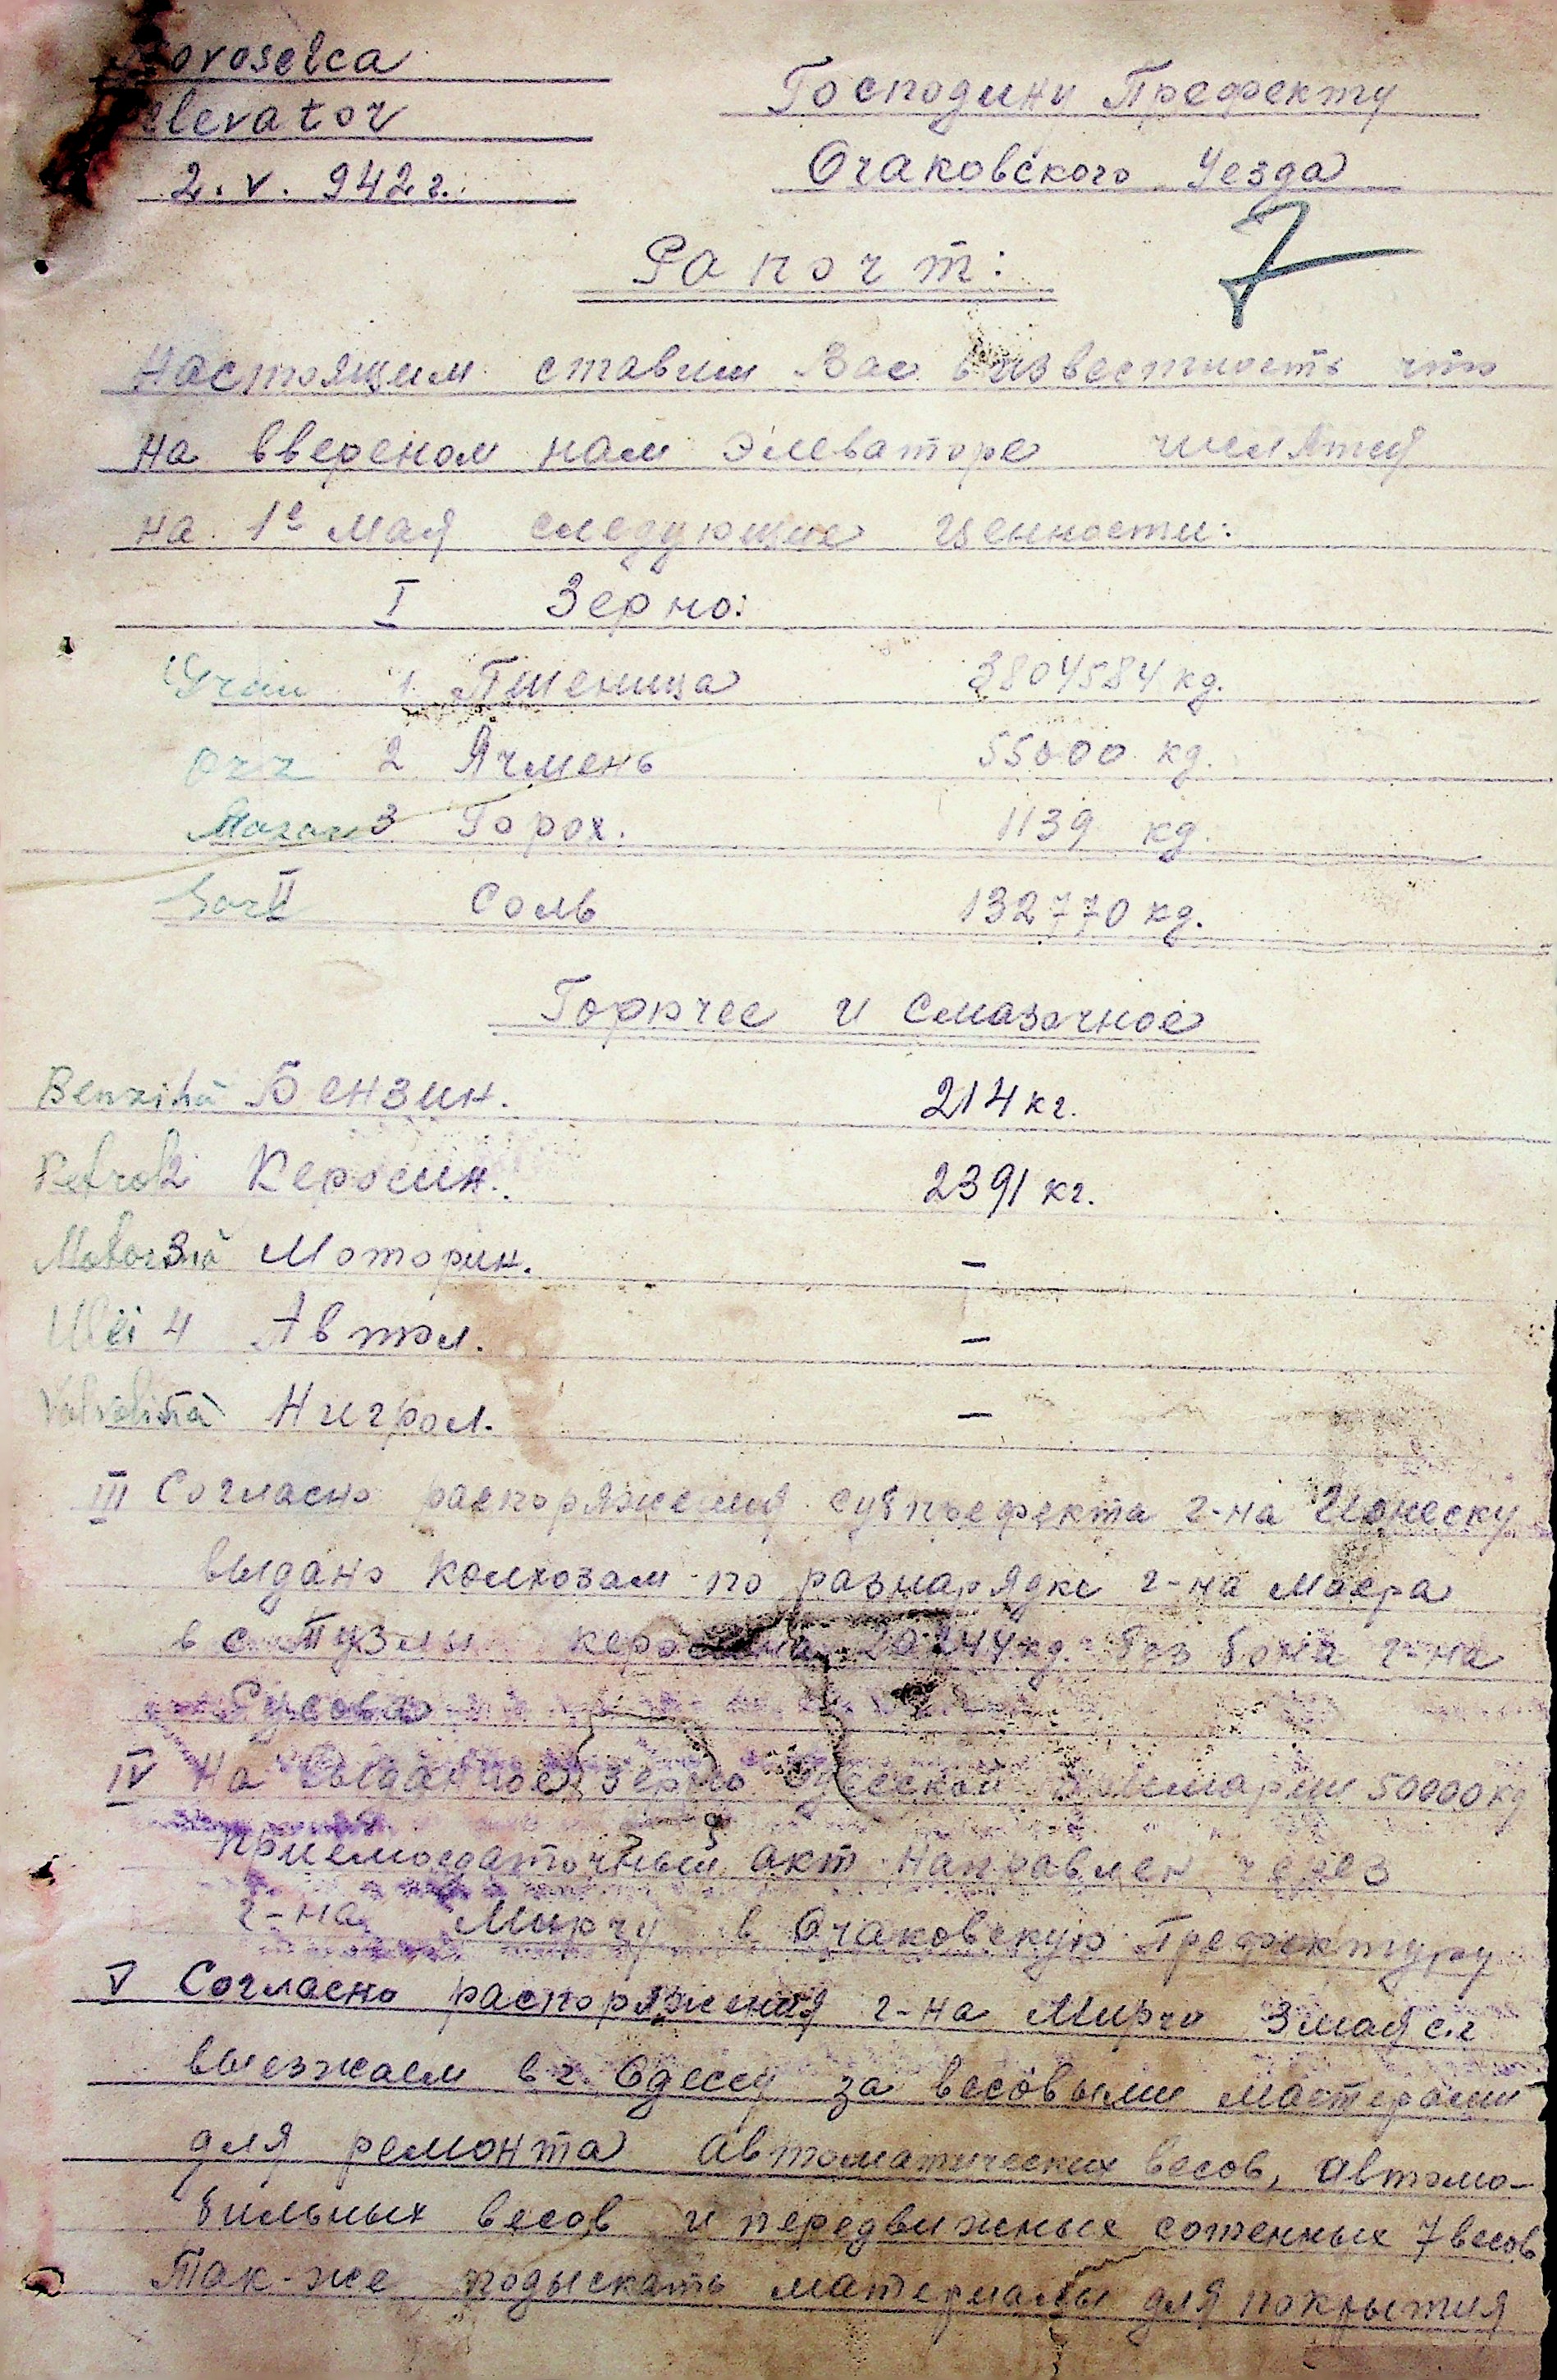 ovoselca
elevator
2. V. 942 г.
Господину Префекту
Очаковского Уезда
7
Рапорт:
Настоящим ставим Вас в известность что
на ввереном нам Элеваторе числятся
на 1е мая следующие ценности:
I Зерно:
Grâu 1. Пшеница 3804584 кд.
Orz 2 Ячмень 55000 кд.
Mazare 3 Горох. 1139 кд.
II Соль 132770 кд.
Горючее и Смазочное
Benzină Бензин. 214 кг.
Petrol 2 Керосин. 2391 кг.
Motorină 3 Моторин. –
Ulei 4 Автол. –
Valvolină Нигрол. –
III Согласно распоряжения субпрефекта г-на Ионеску
выдано колхозам по разнарядке г-на Маера
в с. Тузлы керосина 20244 кд. без бона г-на
Русова
IV На выданное зерно Одесской 50000 кд
приемосдаточный акт направлен через
г-на Мирчу в Очаковскую Префектуру
V Согласно распоряжения г-на Мирчо 3 мая с.г
выезжаем в г. Одессу за весовыми мастерами
для ремонта автоматических весов, автомо-
бильных весов и передвижных сотенных 7 весов
Так-же подыскать материалы для покрытия